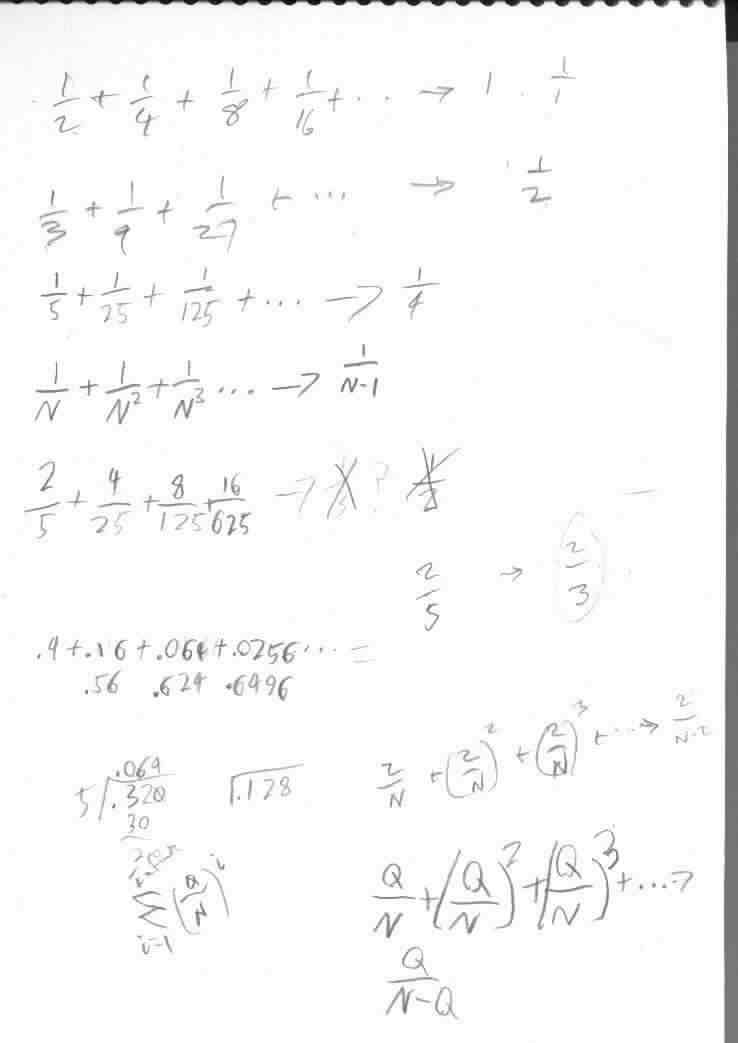 1/2 + 1/4 + 1/8 + 1/16 + ... → 1 . 1/1
1/3 + 1/9 + 1/27 + ... → 1/2
1/5 + 1/25 + 1/125 + ... → 1/4
1/N + 1/N² + 1/N³ ... → 1/(N-1)
2/5 + 4/25 + 8/125 + 16/625 → ?
2/5 → 2/3
.4+.16+.064+.0256... =
.56 .624 .6496
2/N + (2/N)² + (2/N)³ + ... → 2/(N-2)
.064
5 √.320 √.128
30
∑ i=1 (Q/N)^i
Q/N + (Q/N)² + (Q/N)³ + ... →
Q/(N-Q)